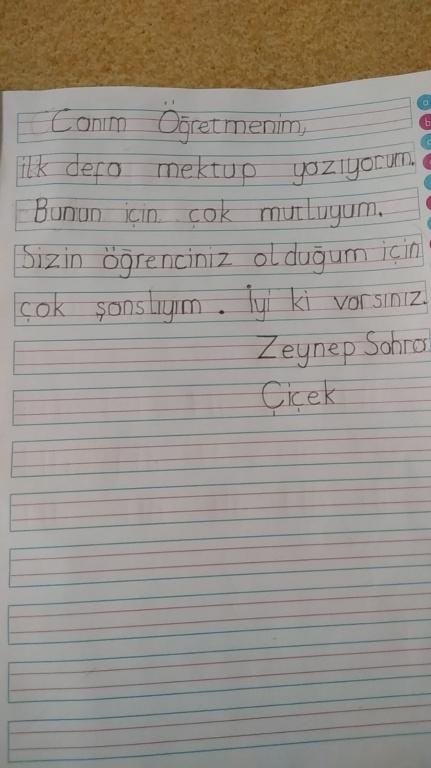 Canım Öğretmenim,
ilk defa mektup yazıyorum.
Bunun için çok mutluyum.
Sizin öğrenciniz olduğum için
çok şanslıyım. İyi ki varsınız.
Zeynep Sahra
Çiçek